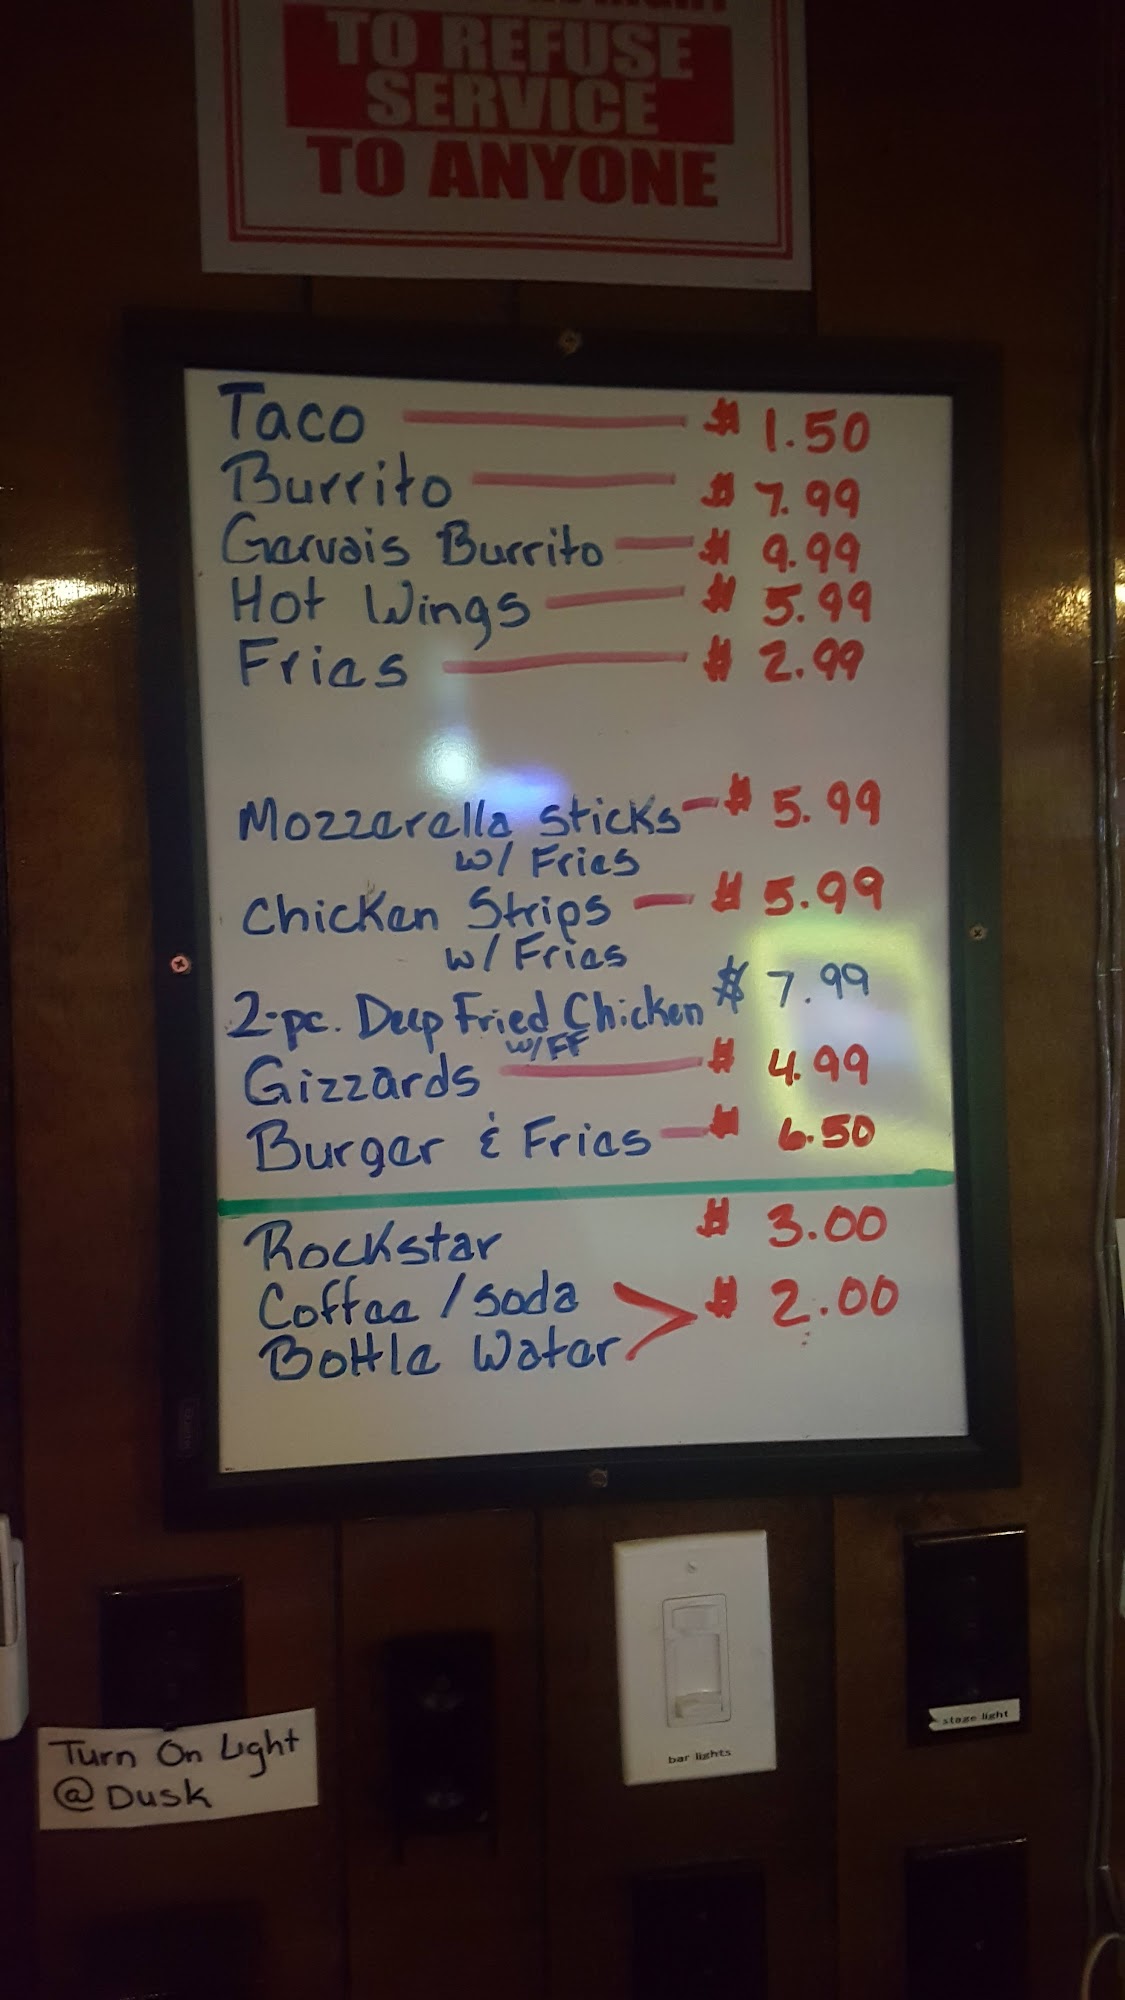 TO REFUSE
SERVICE
TO ANYONE
Taco $ 1.50
Burrito $ 7.99
Garvais Burrito $ 9.99
Hot Wings $ 5.99
Fries $ 2.99
Mozzarella sticks $ 5.99
w/ Fries
Chicken Strips $ 5.99
w/ Fries
2-pc. Deep Fried Chicken $ 7.99
w/FF
Gizzards $ 4.99
Burger & Fries $ 6.50
Rockstar $ 3.00
Coffee / soda $ 2.00
Bottle Water
Turn On Light
@ Dusk
bar lights
stage light